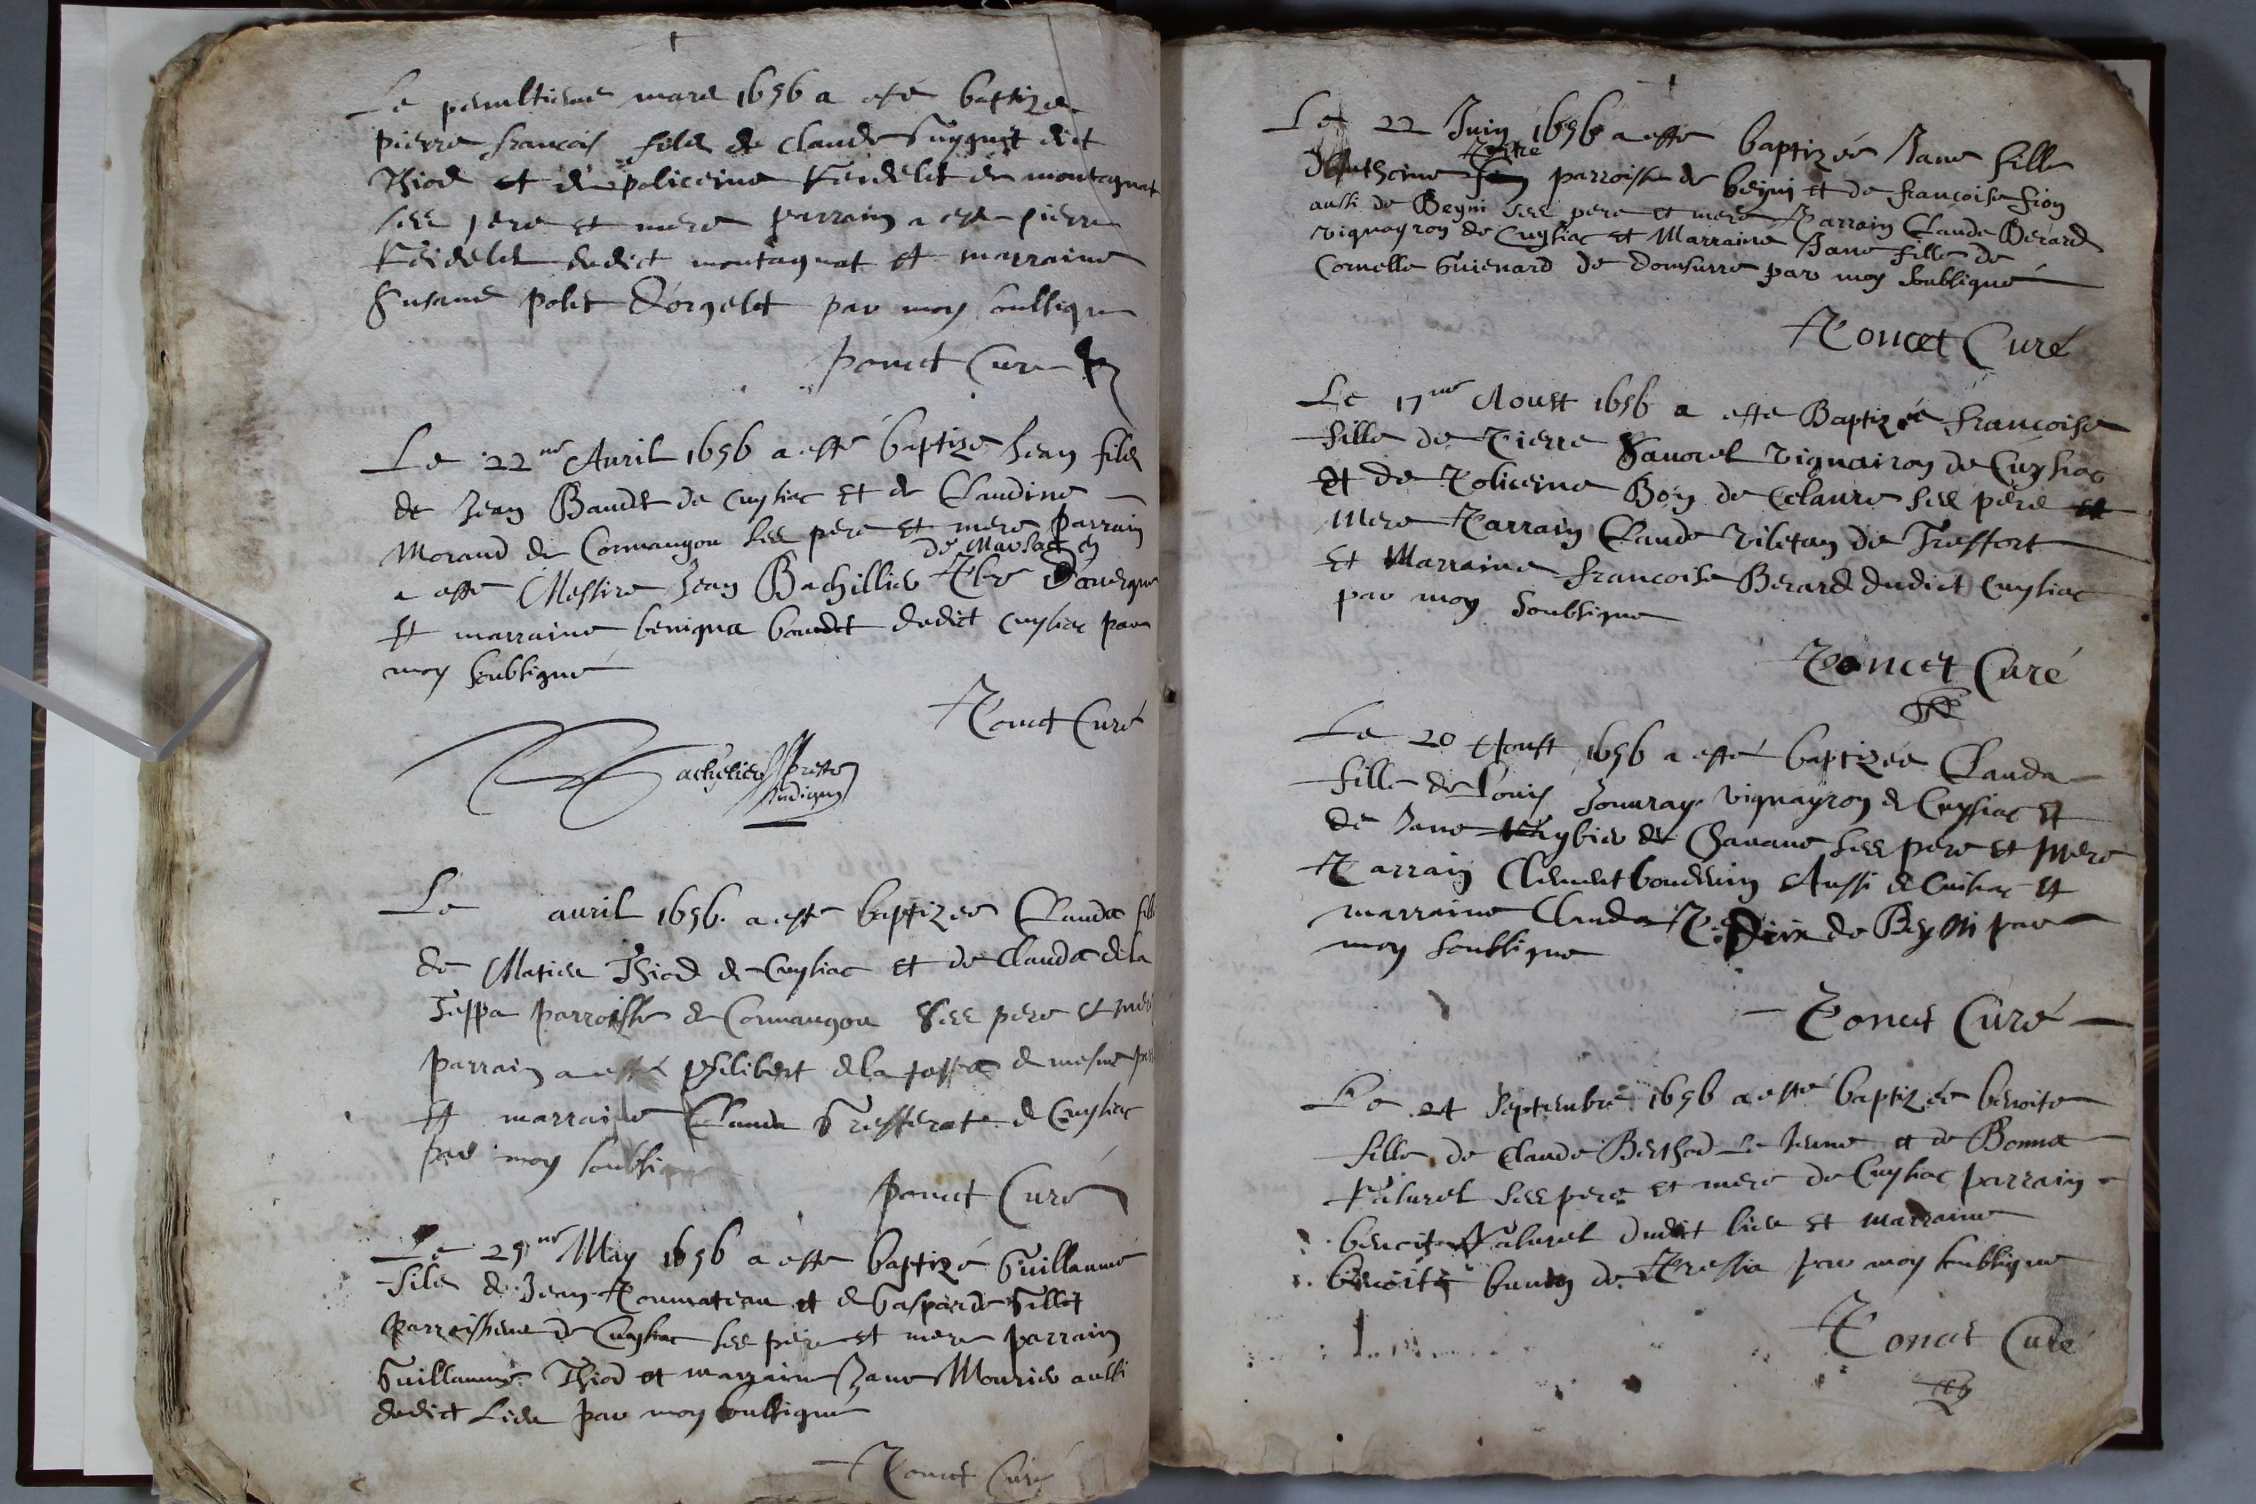 Le penultieme mars 1656 a esté baptizé
pierre francois filz de claude Guyguet dict
Thiod et de policeine Reidelet de montagnat
ses pere et mere parrain a esté pierre
Reidelet dudict montagnat et marraine
Susane polet d'orgelet par moy soubsigne
Poncet Curé
Le 22me Auril 1656 a esté baptize Jean filz
de Jean Baudet de Cuysiac et de Claudine
Morand de Cormangou ses pere et mere parrain
de Marsac en
a esté Messire Jean Bachillier Pbre d'auergne
et marraine benigna baudet dudict cuysiac par
moy soubsigné
Poncet Curé
Bachelier prestre indigne
Le auril 1656 a esté baptizée Clauda fille
de Matieu Thiod de Cuysiac et de Clauda de la
Teppa parroisse de Cormangou ses pere et mere
parrain a esté philibert de la de mesme
et marraine Clauda de Cuysiac
par moy
Poncet Curé
Le 25me May 1656 a esté baptizé Guillaume
filz de Jean et de Gasparde Gillet
de Cuysiac ses pere et mere parrain
Guillaume Thiod et marraine Jane Mourier aussi
dudict Lieu par moy soubsigné
Poncet Curé
Le 22 Juin 1656 a esté baptizée Jane fille
d'Anthoine parroisse de beyni et de francoise fion
aussi de Beyni ses pere et mere Parrain Claude Berard
vignayron de Cuysiac et Marraine Jane fille de
Cornelle Guienard de domsurre par moy soubsigné
Poncet Curé
Le 17me Aoust 1656 a esté Baptizée francoise
fille de Pierre vignairon de Cuysiac
et de Policeine Boy de ses pere et
mere Parrain Claude viletan de Treffort
et Marraine francoise Berard dudict Cuysiac
par moy soubsigne
Poncet Curé
Le 20 Aoust 1656 a esté baptizée Clauda
fille de Louis Jouuray vignayron de Cuysiac et
de Jane de Chauane ses pere et mere
Parrain Clement boudenin Aussi de Cuisiac et
marraine Clauda de Beyni par
moy soubsigne
Poncet Curé
Le 24 Septembre 1656 a esté baptizée benoite
fille de Claude Berthod Le Jeune et de Bonna
ses pere et mere de Cuysiac parrain
benoit dudict lieu et marraine
benoite de Pressia par moy soubsigne
Poncet Curé